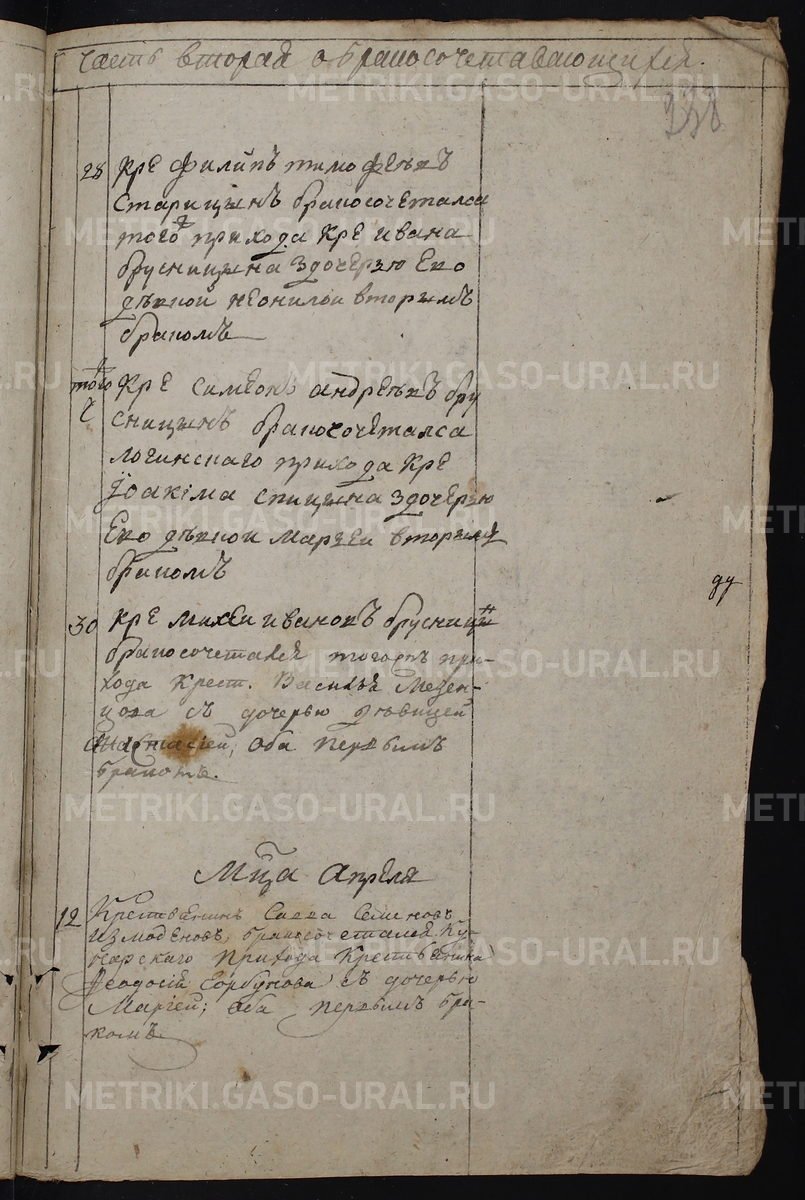 часть вторая о бракосочетавающихся.
238
28 Кре филипъ тимофѣевъ
старицынъ бракосочеталса
того прихода кре ивана
брусницына здочерью Его
дѣвкой неонилой вторымъ
бракомъ
того ч Кре симеонъ андрѣевъ бру
сницынъ бракосочеталса
логинскаго прихода кре
Іоакіма спицына здочерью
Его дѣвкой марьеи вторымъ
бракомъ
30 кре михеи ивановъ брусницынъ
бракосочетался тогожъ при-
хода крест. Василья Мезен-
цова съ дочерью дѣвицей
Анастасіей, оба первымъ
бракомъ.
Мца Апреля
12 Крестьянинъ Савва Семеновъ
Измоденовъ, бракосочетался Ку-
ярскаго прихода крестьянина
Феодосія Горбунова съ дочерью
Маріей; оба первымъ бра-
комъ.